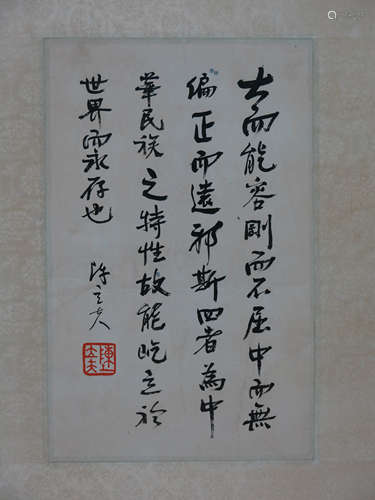 大而能容剛而不屈中而無
偏正而遠邪斯四者為中
華民族之特性故能屹立於
世界而永存也
陳立夫